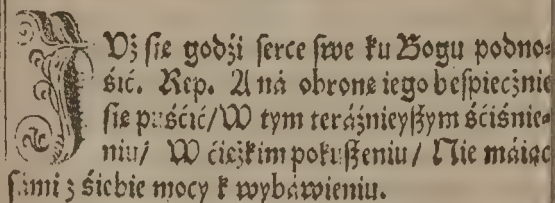 IUż ſie godźi ſerce ſwe ku Bogu podno⸗
śić. Rep. A ná obronę iego beſpiecżnie
ſię puśćić/ W tym teráźnieyßym śćiśnie⸗
niu/ W ćieżkim pokußeniu/ Nie máiąc
ſámi z śiebie mocy k wybáwieniu.